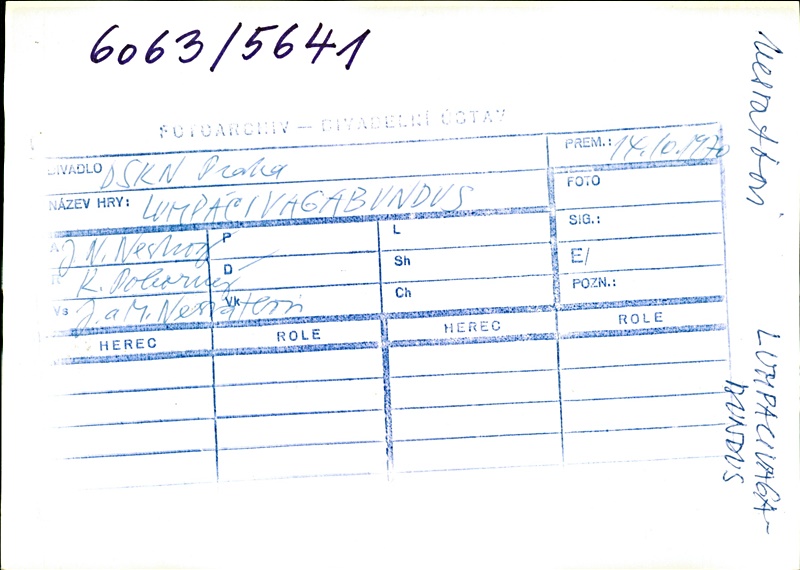 6063/5641
FOTOARCHIV — DIVADELNÍ ÚSTAV
DIVADLO DSKN Praha
PREM.: 14.10.1970
NÁZEV HRY: LUMPÁCIVAGABUNDUS
FOTO
SIG.:
E/
POZN.:
A J. N. Nestroy
R K. Pokorný
Vs J. a M.
P
D
Vk
L
Sh
Ch
HEREC ROLE HEREC ROLE
LUMPACIVAGA-
BUNDUS